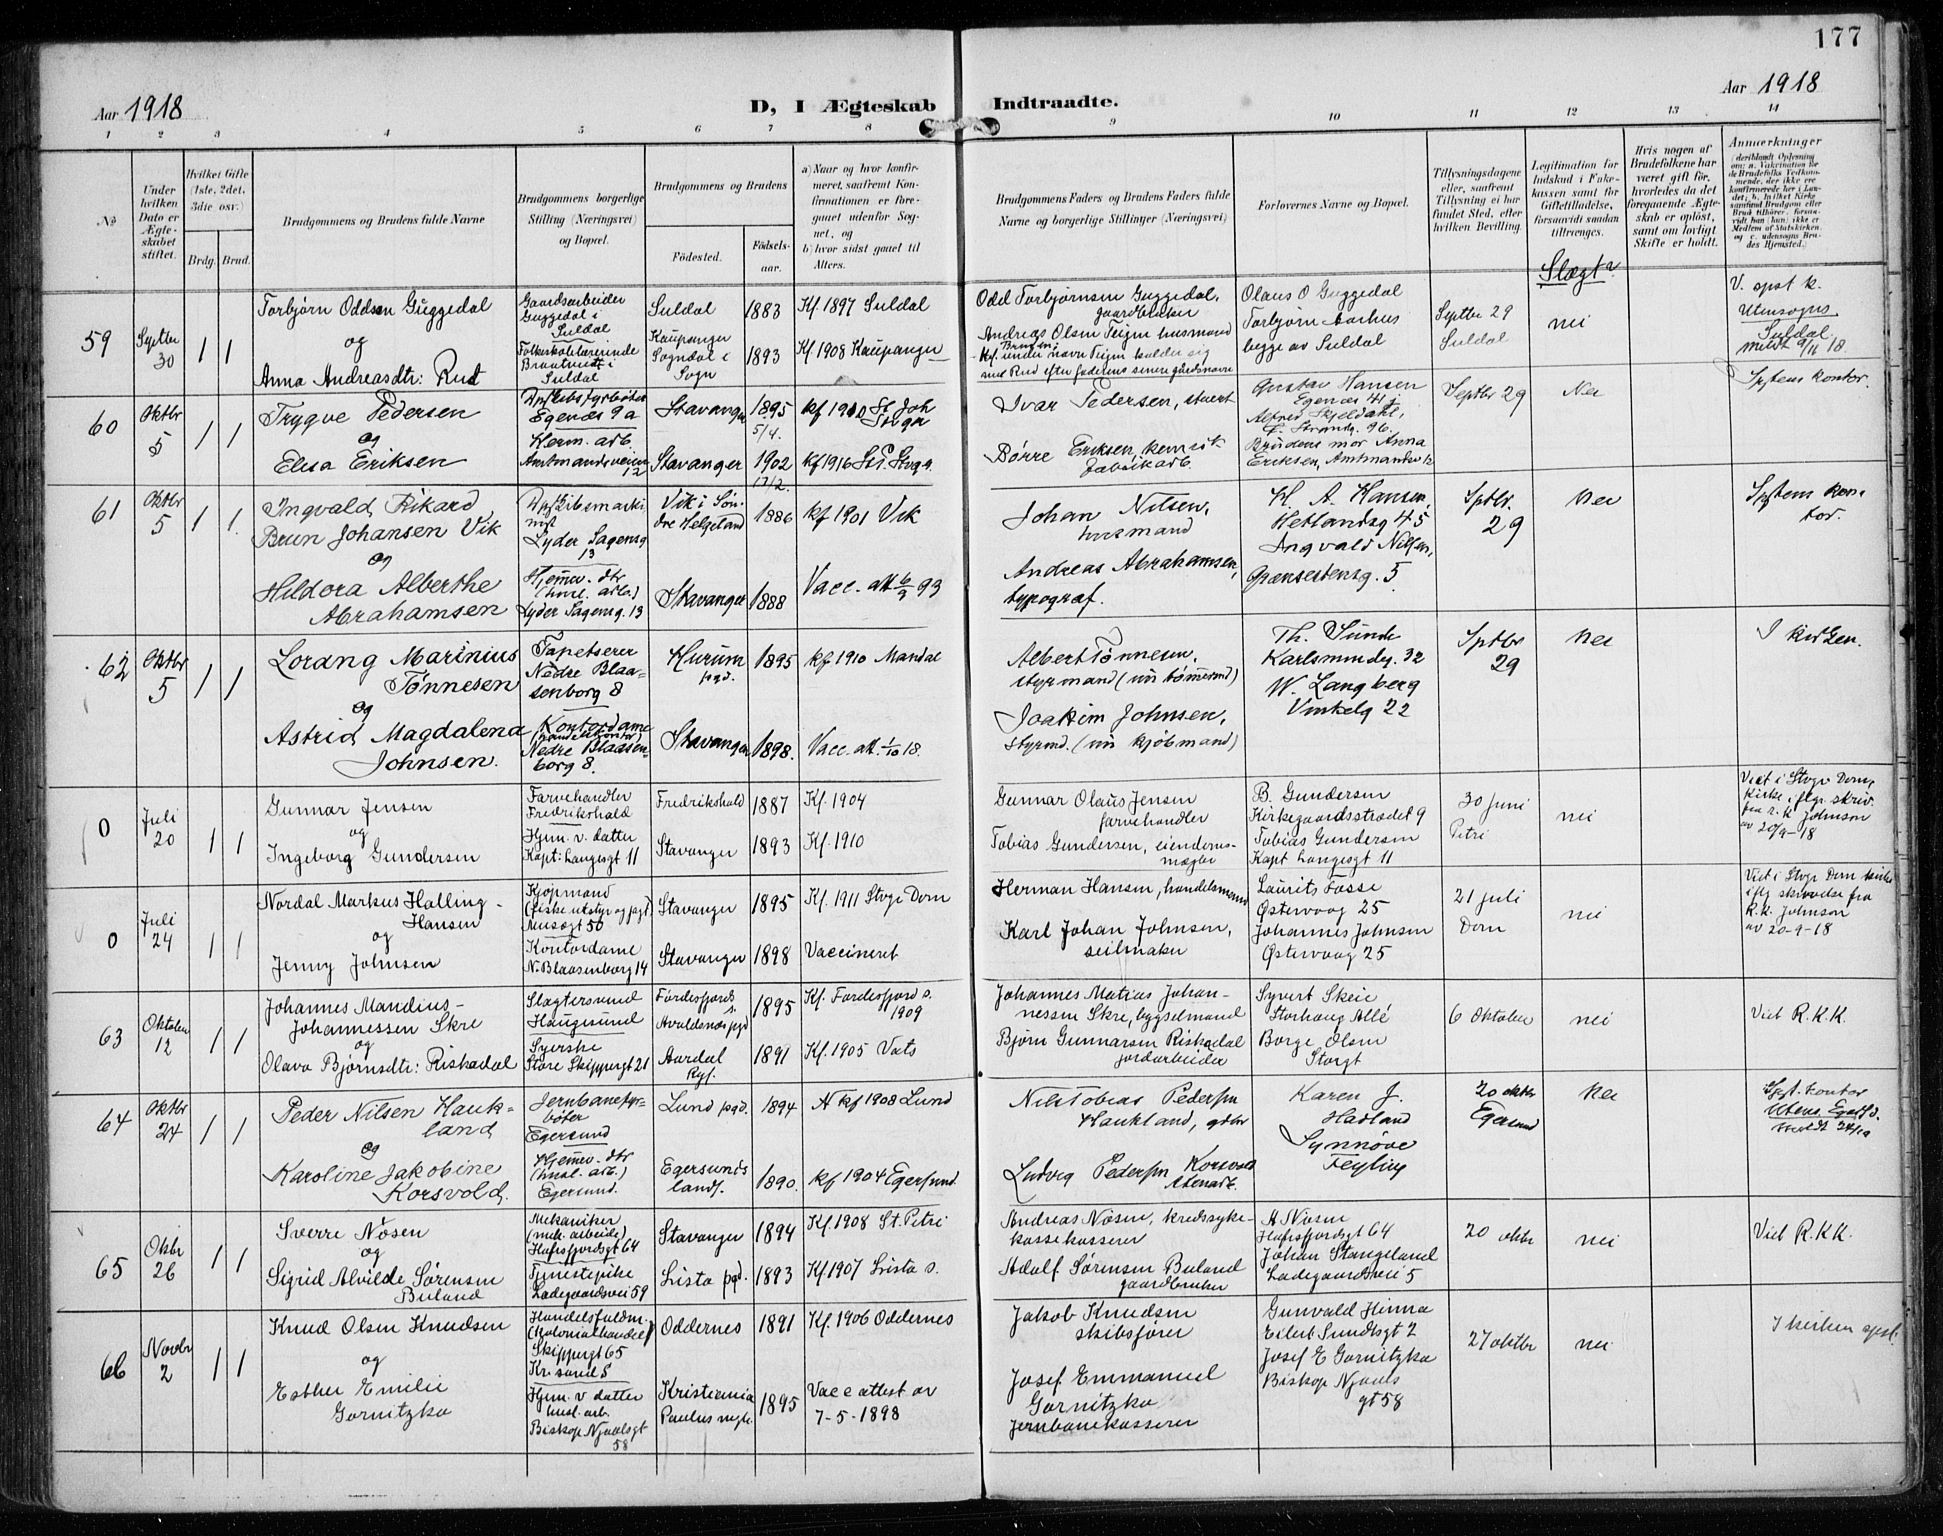 177
Aar 1918
D, I Ægteskab Indtraadte.
Aar 1918
1 2 3 4 5 6 7 8 9 10 11 12 13 14
№
Under hvilken Dato er Ægteskabet stiftet.
Hvilket Gifte (1ste, 2det, 3die osv.)
Brdg. Brud.
Brudgommens og Brudens fulde Navne
Brudgommens borgerlige Stilling (Næringsvei) og Bopæl.
Brudgommens og Brudens
Fødested.
Fødselsaar.
a) Naar og hvor konfirmeret, saafremt Konfirmationen er foregaaet udenfor Sognet, og
b) hvor sidst gaaet til Alters.
Brudgommens Faders og Brudens Faders fulde Navne og borgerlige Stillinger (Næringsvei)
Forlovernes Navne og Bopæl.
Tillysningsdagene eller, saafremt Tillysning ei har fundet Sted, efter hvilken Bevilling.
Legitimation for Indskud i Enkekassen samt for Giftetilladelse, forsaavidt saadan tiltrænges.
Hvis nogen af Brudefolkene har været gift før, hvorledes da det foregaaende Ægteskab er opløst, samt om lovligt Skifte er holdt.
Anmærkninger
Slægt?
59
Septbr 30
1 1
Torbjørn Oddsen Guggedal
og
Anna Andreasdtr: Rud
Gaardsarbeider
Guggedal i
Suldal
Folkeskolelærerinde
Suldal
Suldal
Kaupanger
Sogndal i
Sogn
1883
1893
Kf 1897 Suldal
Kf. 1908 Kaupanger
Odd Torbjørnsen Guggedal,
gaardbruker
Andreas Olsen Teigen husmand
Kf. under navn Teigen kalder sig
med Rud efter faderens senere gårdsnavn
Olaus O Guggedal
Torbjørn Aarhus
begge av Suldal
Septbr 29
Suldal
nei
V. spst k.
Utensogns
Suldal
meldt 9/11 18.
60
Oktbr 5
1 1
Trygve Pedersen
og
Elisa Eriksen
Egenæs 9a
Herm. arb
Amtmandsveien 12
Stavanger
Stavanger
1895
5/4.
1902
17/2.
kf 1910 St Joh
Stvgr
kf 1916 St P. Stvgr.
Ivar Pedersen, stuert
Børre Eriksen, hermetk
fabrikarb.
Gustav Hansen
Egenæs 41
Alfred Skjeldahl,
Ø. Strandg. 96.
Brudens mor Anna
Eriksen, Amtmandsv 12
Septbr 29
Nei
Spstens kontor.
61
Oktbr 5
1 1.
Ingvald Rikard
Brun Johansen Vik
og
Hildora Alberthe
Abrahamsen
nist
Lyder Sagensg
13
Hjemmev. dtr
(husl. arb.)
Lyder Sagensg. 13
Vik i Søn
dre Helgeland
Stavanger
1886
1888
kf 1901 Vik
Vacc. att 6/9 93
Johan Nilsen,
husmand
Andreas Abrahamsen,
typograf.
H. A. Hansen,
Hetlandsg 45
Ingvald Nilsen,
Grænsestensg. 5
Sptbr.
29
Nei
Spstens kon
tor.
62
Oktbr 5
1 1
Lorang Marinius
Tønnesen
og
Astrid Magdalena
Johnsen.
Tapetserer
Nedre Blaa-
senborg 8
Kontordame
Nedre Blaasen-
borg 8.
Hurum
pgd.
Stavanger
1895
1898.
kf 1910 Mandal
Vacc. att 1/10 18.
Albert Tønnesen,
styrmand (nu tømmermd)
Joakim Johnsen,
styrmd. (nu kjøbmand)
Th. Sunde
Karlsmindeg. 32
W. Langberg
Vinkelg 22
Sptbr
29
Nei
I kirken.
0
Juli 20
1 1
Gunnar Jensen
og
Ingeborg Gundersen
Farvehandler
Fredrikshald
Hjem. v. datter
Kapt: Langesgt 11
Fredrikshald
Stavanger
1887
1893
Kf. 1904
Kf. 1910
Gunnar Olaus Jensen
farvehandler
Tobias Gundersen, eiendoms-
mægler
B. Gundersen
Kirkegaardsstrædet 9
Tobias Gundersen
Kapt Langesgt 11
30 Juni
Petri
nei
Viet i Stvgr Dom,
Kirke i flgr. skriv.
fra r. k Johnson
av 20/9 - 18
0
Juli 24
1 1
Nordal Markus Halling-
Hansen
og
Jenny Johnsen
Kjøpmand
(fiske utstyr og fgt.
Nusægt 50
Kontordame
N. Blaasenborg 14
Stavanger
Stavanger
1895
1898
Kf. 1911 Stvgr Dom
Vaccineret
Herman Hansen, handelsmand
Karl Johan Johnsen,
seilmaker
Laurits Fosse
Østervaag 25
Johannes Johnsen
Østervaag 25
21 juli
Dom
nei
Viet i Stvgr Dom kirke
i flg skrivelse fra
R.K. Johnson
av 20-9-18
63
Oktober 12
1 1
Johannes Mandius-
Johannessen Skre
og
Olava Bjørnsdtr: Riskadal
Slagtersvend
Haugesund
Syerske
Store Skippergt 21
Førdesfjords
s.
Avaldsnes pgd
Aardal
Ryf.
1895
1891
Kf. Førdesfjord s.
1909
Kf. 1905 Vats
Johannes Matias Johan-
nessen Skre, bygselmand
Bjørn Gunnarsen Riskadal
jordarbeider
Syvert Skeie
Storhaug Allé
Børge Olsen
Storgt
6 Oktober
nei
Viet R.K.K.
64
Oktbr 24
1 1
Peder Nilsen Hauk-
land
og
Karoline Jakobine
Korsvold.
Jernbanefyr-
bøter
Egersund
Hjemmev. dtr
(husl. arb.)
Egersund.
Lund pgd.
Egersunds
lands.
1894
1890.
kf 1908 Lund
kf 1904 Egersund.
Nils Tobias Pedersen
Haukland, gdbr
Ludvig Pedersen Korsvold
Karen J.
Hadland
Synnøve
Feyling
20 oktbr
Egersund
Nei
Spst. kontor
Utens Egersd.
meldt
65
Oktbr 26
1 1
Sverre Nøsen
og
Sigrid Alvilde Sørensen
Buland
Mekaniker
(mek. arbeide)
Hafrsfjordsgt 64
Tjenestepike
Ladegaardsvei 59
Stavanger
Lista pgd.
1894
1893
Kf. 1908 St. Petri
Kf 1907 Lista s.
Andreas Nøsen, kredssyke-
kassekasserer
Adolf Sørensen Buland
gaardbruker
A Nøsen
Hafrsfjordsgt 64
Johan Stangeland
Ladegaardsvei 5
20 oktbr
nei
Viet R.K.K.
66
Novbr 2
1 1
Knud Olsen Knudsen
og
Esther Emilie
Gornitzka
Handelsfuldm.
(kolonialhandel)
Skippergt 65
Kr. sand S
Hjem. v datter
husl. arb.
Biskop Njaalsgt
58
Oddernes
Kristiania
Paulus mgh.
1891
1895
Kf. 1906 Oddernes
Vacc attest av
7-5-1898
Jakob Knudsen
skibsfører
Josef Emmanuel
Gornitzka
jernbanekasserer
Gunvald Hinna
Eilert Sundtsgt 2
Josef E Gornitzka
Biskop Njaals
gt 58
27 oktbr
nei
I kirken spst.